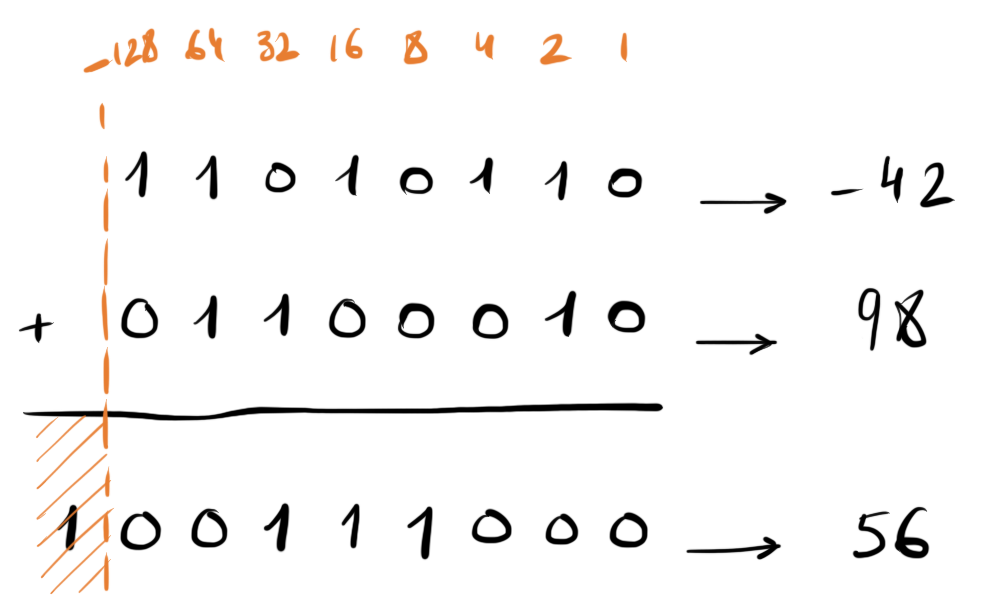 -128 64 32 16 8 4 2 1
1 1 0 1 0 1 1 0 → -42
+ 0 1 1 0 0 0 1 0 → 98
1 0 0 1 1 1 0 0 0 → 56